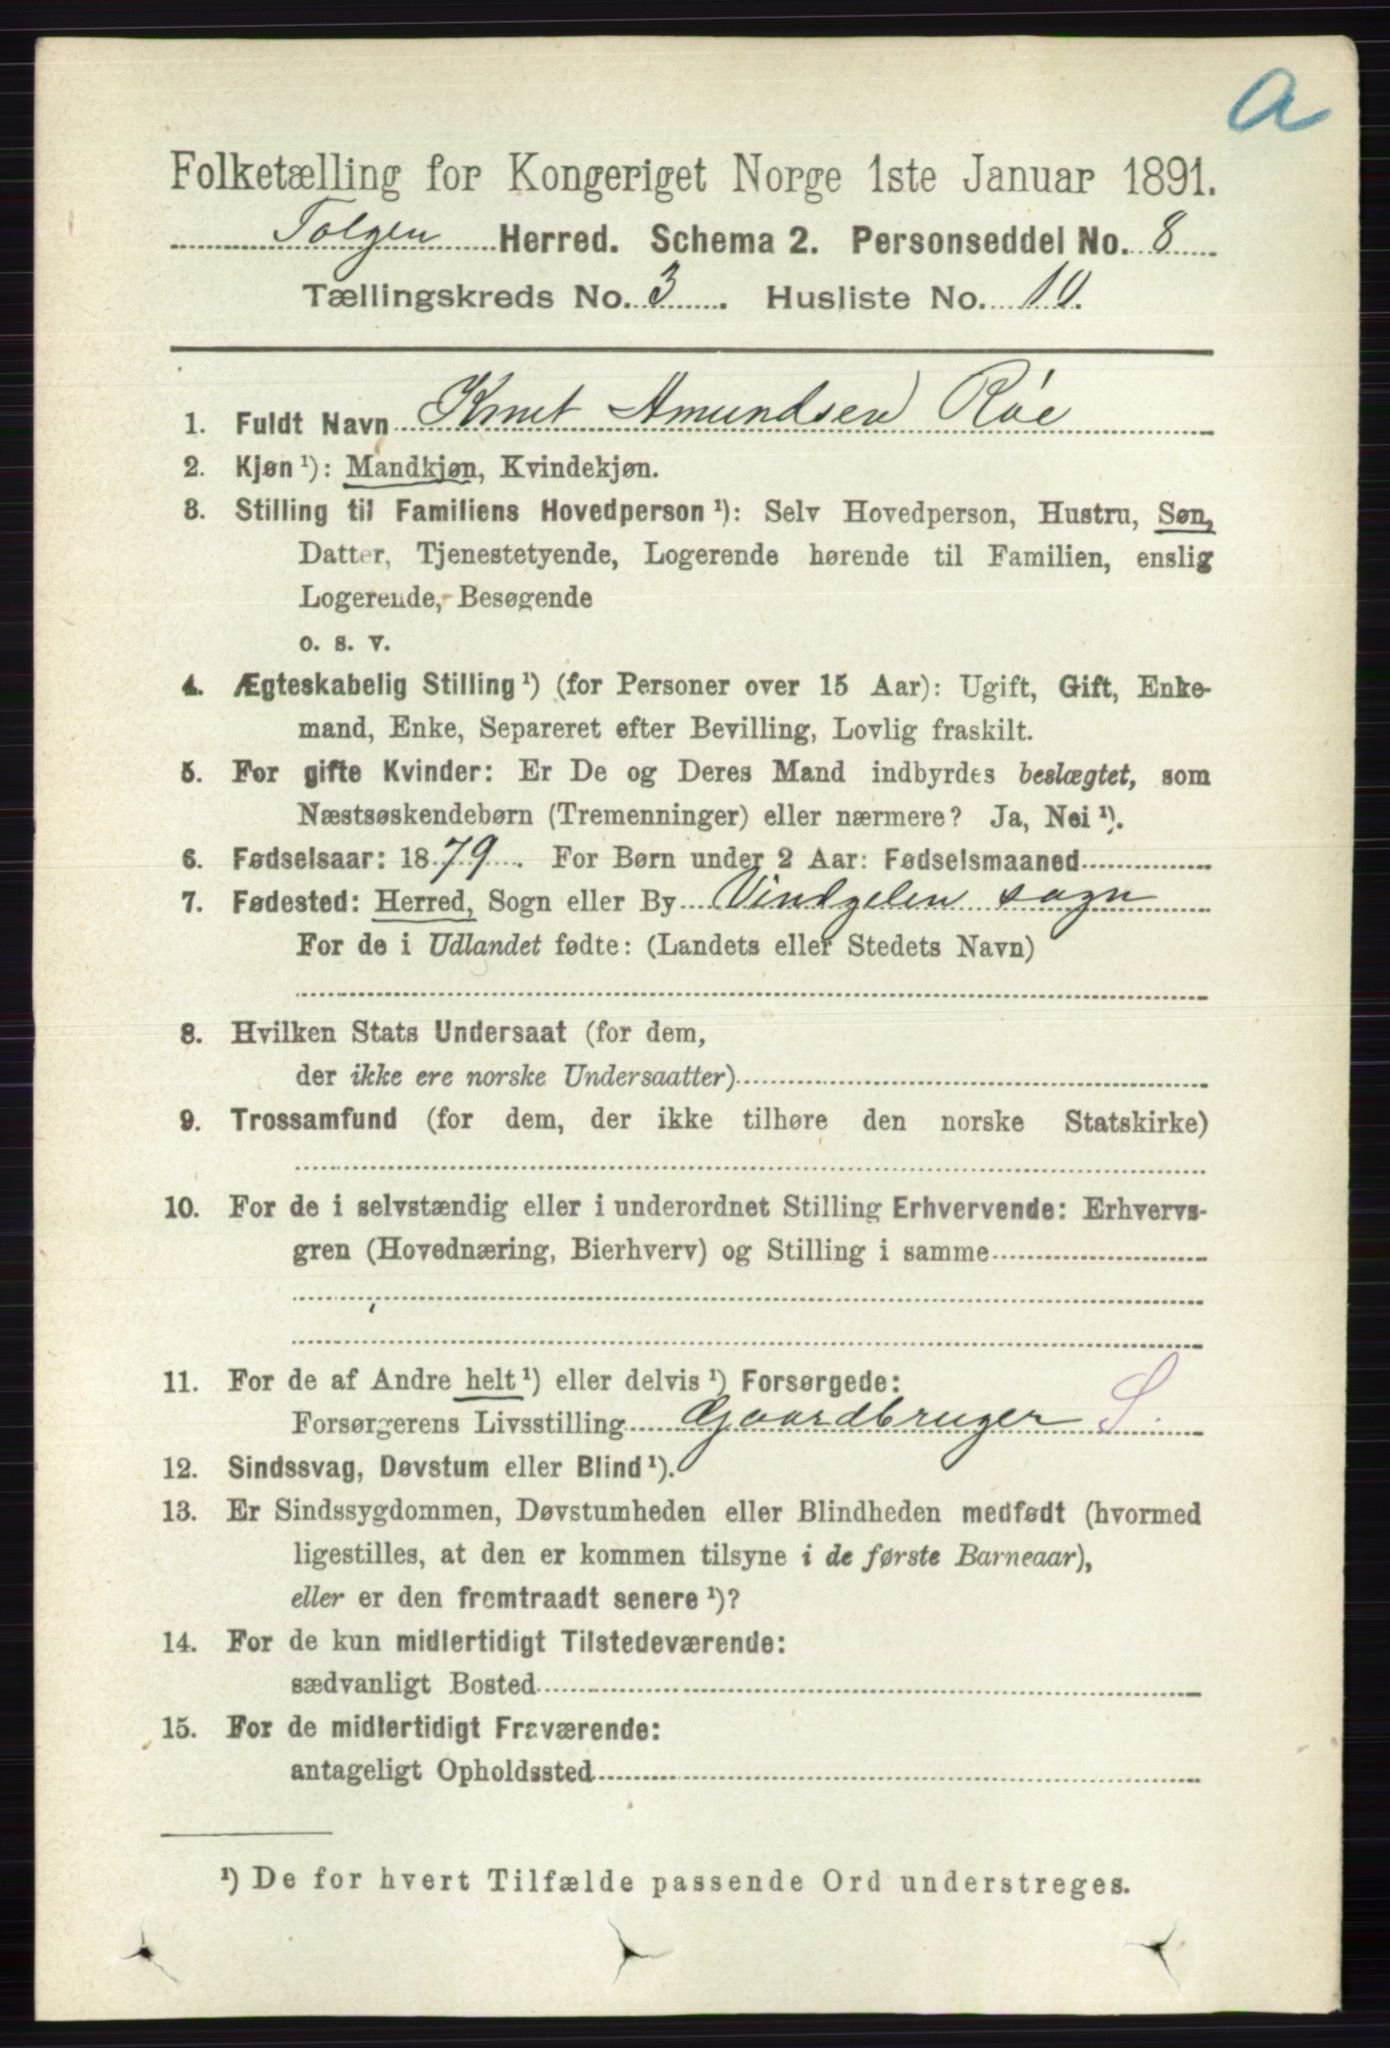 a
Folketælling for Kongeriget Norge 1ste Januar 1891.
Tolgen Herred. Schema 2. Personseddel No. 8
Tællingskreds No. 3. Husliste No. 10.
1. Fuldt Navn Knut Amundsen Røe
2. Kjøn ¹): Mandkjøn, Kvindekjøn.
3. Stilling til Familiens Hovedperson ¹): Selv Hovedperson, Hustru, Søn,
Datter, Tjenestetyende, Logerende hørende til Familien, enslig
Logerende, Besøgende
o. s. v.
4. Ægteskabelig Stilling ¹) (for Personer over 15 Aar): Ugift, Gift, Enke-
mand, Enke, Separeret efter Bevilling, Lovlig fraskilt.
5. For gifte Kvinder: Er De og Deres Mand indbyrdes beslægtet, som
Næstsøskendebørn (Tremenninger) eller nærmere? Ja, Nei ¹).
6. Fødselsaar: 1879. For Børn under 2 Aar: Fødselsmaaned
7. Fødested: Herred, Sogn eller By Vindgelen sogn
For de i Udlandet fødte: (Landets eller Stedets Navn)
8. Hvilken Stats Undersaat (for dem,
der ikke ere norske Undersaatter)
9. Trossamfund (for dem, der ikke tilhøre den norske Statskirke)
10. For de i selvstændig eller i underordnet Stilling Erhvervende: Erhvervs-
gren (Hovednæring, Bierhverv) og Stilling i samme
11. For de af Andre helt ¹) eller delvis ¹) Forsørgede:
Forsørgerens Livsstilling Gaardbruger S.
12. Sindssvag, Døvstum eller Blind ¹).
13. Er Sindssygdommen, Døvstumheden eller Blindheden medfødt (hvormed
ligestilles, at den er kommen tilsyne i de første Barneaar),
eller er den fremtraadt senere ¹)?
14. For de kun midlertidigt Tilstedeværende:
sædvanligt Bosted
15. For de midlertidigt Fraværende:
antageligt Opholdssted
¹) De for hvert Tilfælde passende Ord understreges.